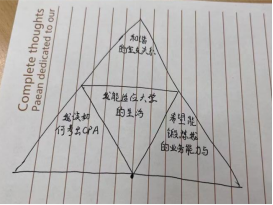 Complete thoughts
Paean dedicated to our
和谐
的室友关系
我能适应大学
的生活
我该如
何考出CPA
希望能
锻炼我
的业务能力